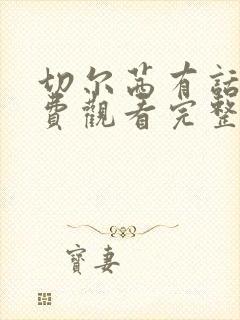 切尔茜有話
費觀看完整
寳妻